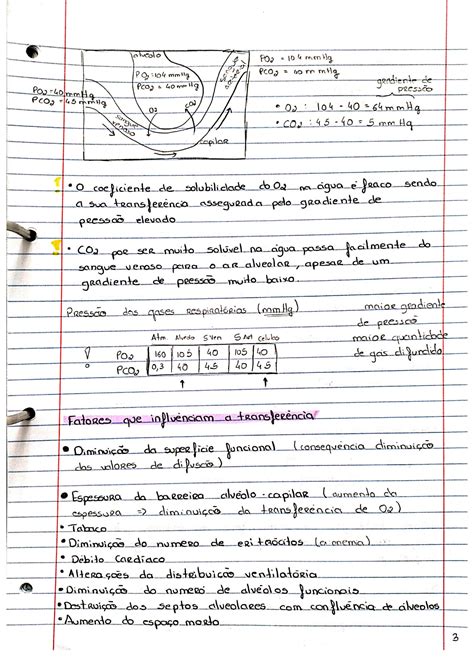 alvéolo
PO2 : 104 mmHg
PCO2 = 40 mmHg
PO2 = 40 mmHg
PCO2 = 45 mmHg
O2
CO2
sangue
venoso
capilar
sangue
arterial
PO2 = 104 mmHg
PCO2 = 40 mmHg
gradiente de
pressão
• O2 : 104 - 40 = 64 mmHg
• CO2 : 45 - 40 = 5 mmHg
! • O coeficiente de solubilidade do O2 na água é fraco sendo
a sua transferência assegurada pelo gradiente de
pressão elevado
! • CO2 por ser muito solúvel na água passa facilmente do
sangue venoso para o ar alveolar, apesar de um
gradiente de pressão muito baixo.
Pressão dos gases respiratórios (mmHg)
maior gradiente
de pressão
maior quantidade
de gás difundido
Atm Alvéolo S Ven S Art celulas
! PO2 160 105 40 105 40
PCO2 0,3 40 45 40 45
Fatores que influenciam a transferência
• Diminuição da superfície funcional (consequência diminuição
dos valores de difusão)
• Espessura da barreira alvéolo-capilar (aumento da
espessura => diminuição da transferência de O2)
• Tabaco
• Diminuição do numero de eritrócitos (anemia)
• Débito Cardíaco
• Alterações da distribuição ventilatória
• Diminuição do numero de alvéolos funcionais
• Destruição dos septos alveolares com confluência de alveolos
• Aumento do espaço morto
3